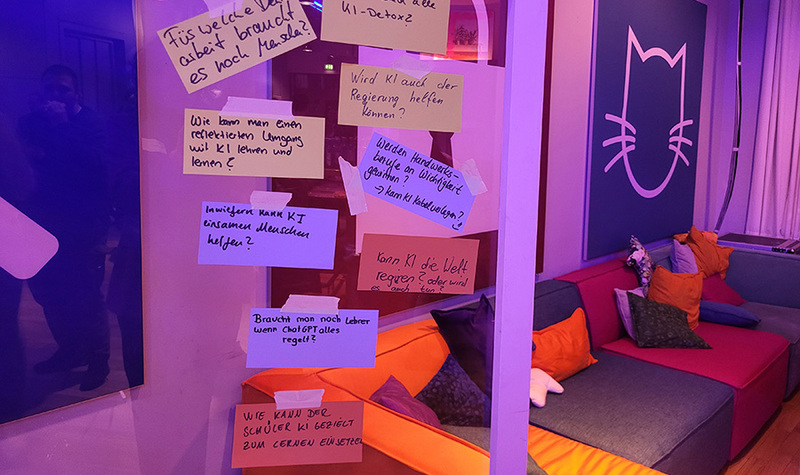 Für welche Denk
arbeit braucht
es noch Mensch?
alle
KI-Detox?
Wird KI auch der
Regierung helfen
können?
Wie kann man einen
reflektierten Umgang
mit KI lehren und
lernen?
Werden Handwerks-
berufe an Wichtigkeit
gewinnen?
→ kann KI Kabel verlegen?
Inwiefern kann KI
einsamen Menschen
helfen?
Kann KI die Welt
regieren? oder wird
es auch tun?
Braucht man noch Lehrer
wenn ChatGPT alles
regelt?
WIE KANN DER
SCHÜLER KI GEZIELT
ZUM LERNEN EINSETZEN